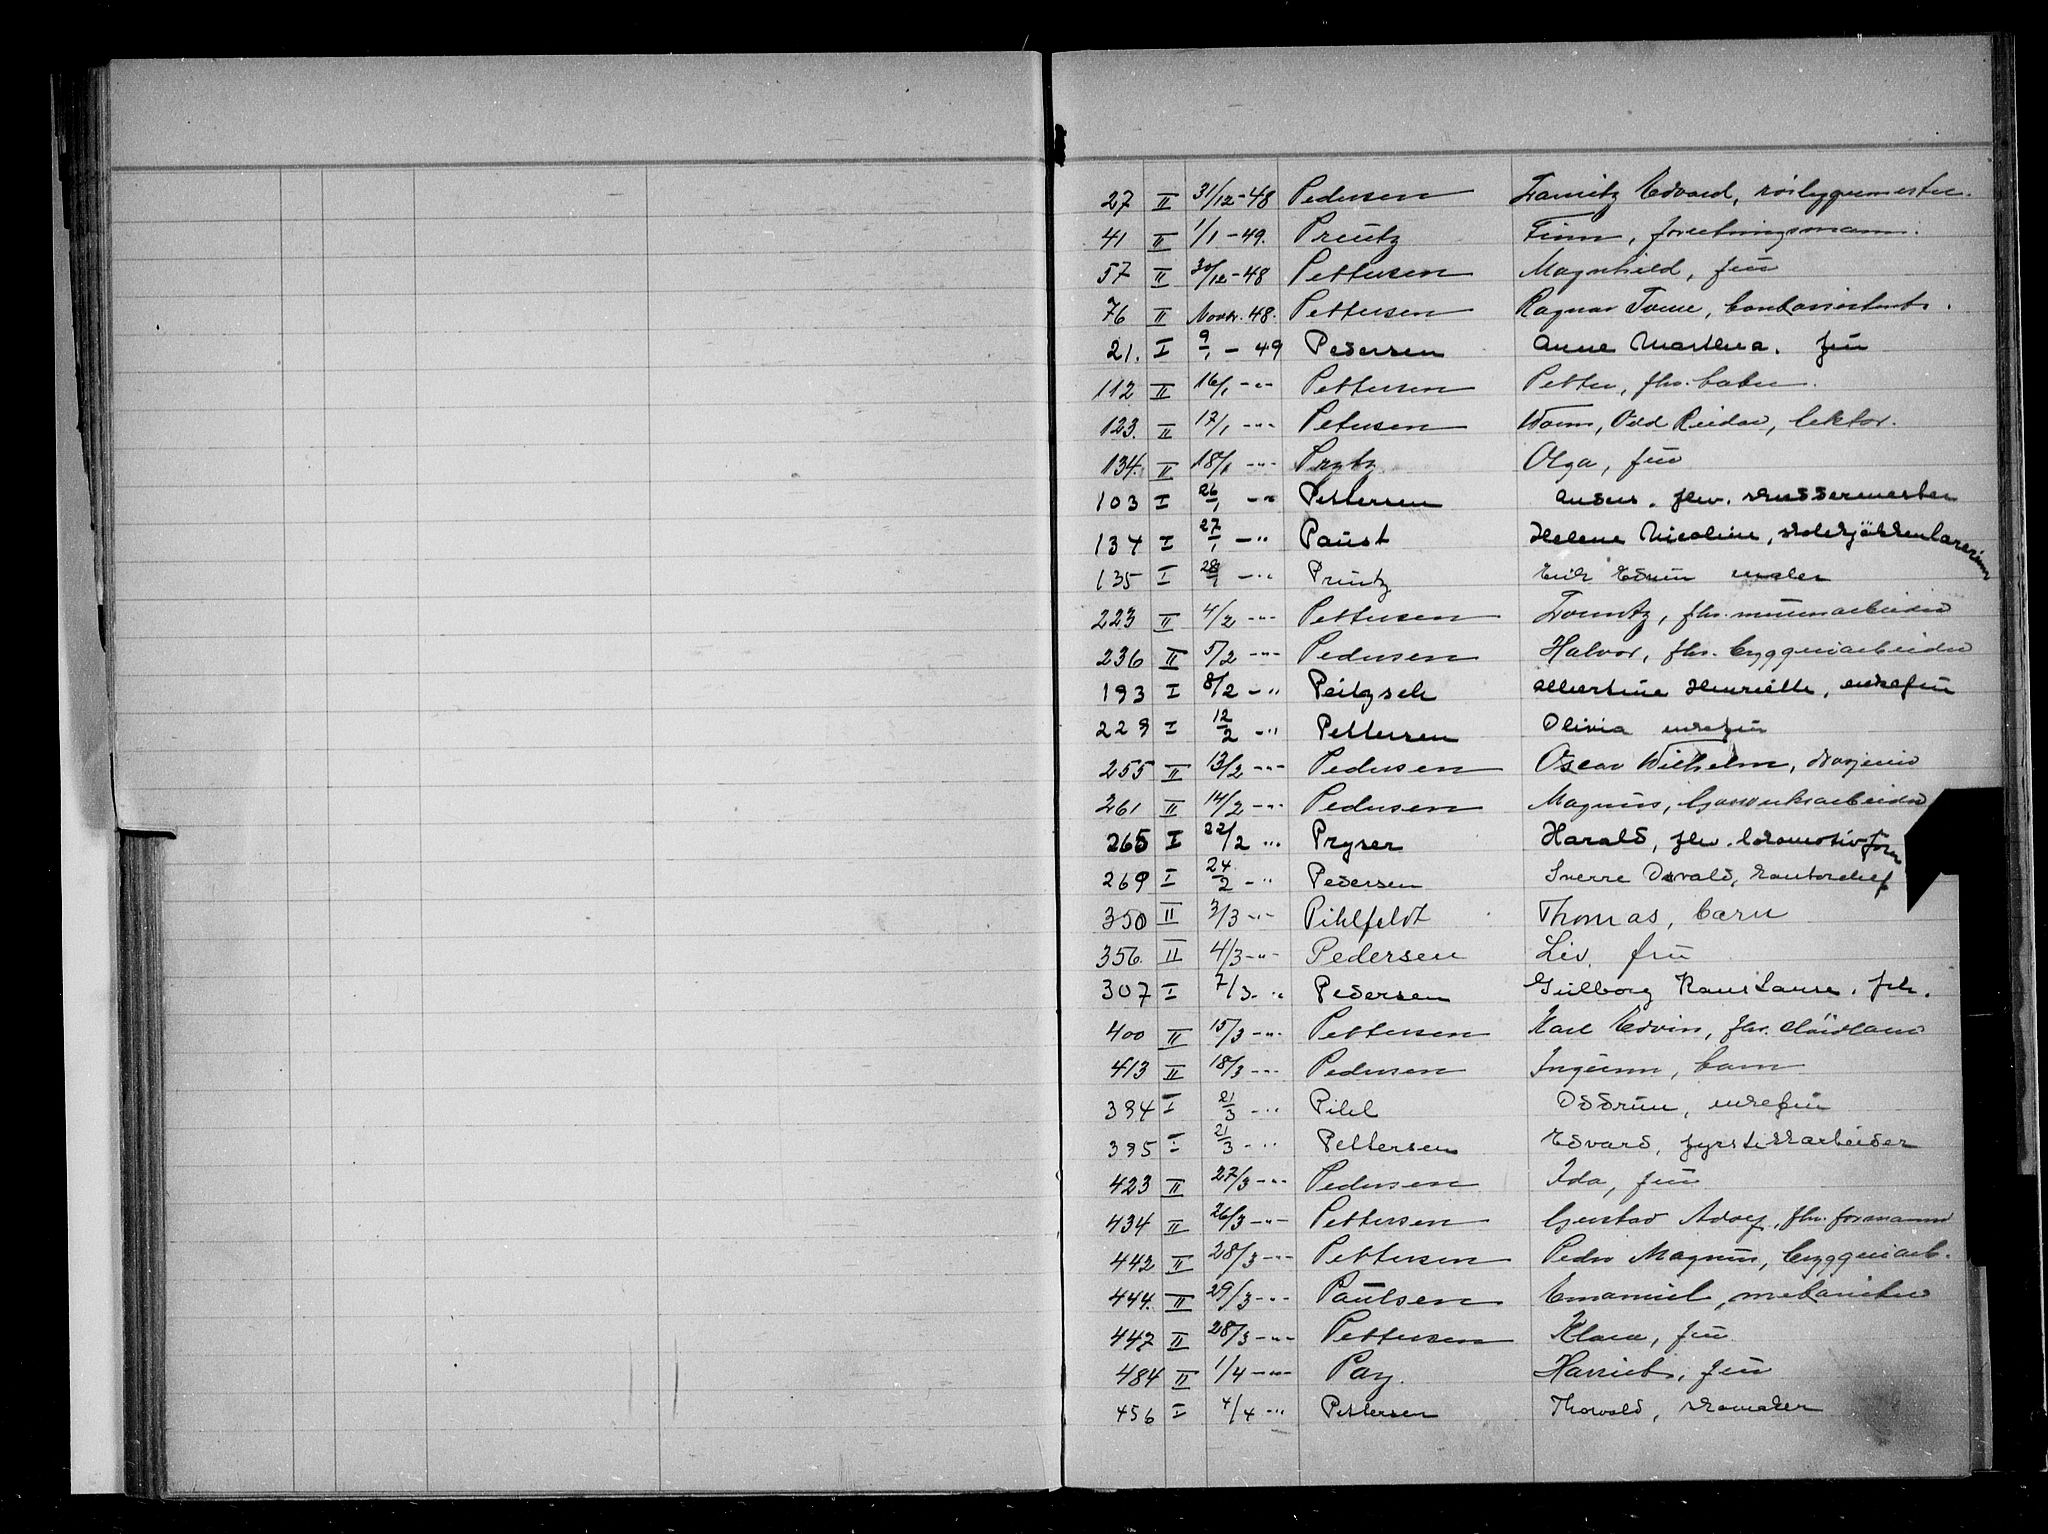 27 II 31/12-48 Pedersen Lauritz Edvard, rørleggermester.
41 II 1/1-49. Preutz Finn, forretningsmann.
57 II 30/12-48 Pettersen Magnhild, frue
76 II Novbr. 48. Pettersen Ragnar Tome,
21. I 9/1 - 49 Pedersen Anne Marthea. frue
112 II 16/1 -"- Pettersen Petter, fhv.
123. II 17/1 -"- Petersen Odd Reidar, lektor.
134. II 18/1 -"- Prytz Olga, frue
103 I 26/1 -"- Pettersen Anders. fhv. muddermester
134 I 27/1 -"- Paust Helene Nicoline, skolekjøkkenlærerinne
135 I 28/1 -"- Preutz Erik Edvin maler
223 II 4/2 -"- Pettersen Lauritz, fhv. murerarbeider
236 II 5/2 -"- Pedersen Halvor, fhv. bryggeriarbeider
193 I 8/2 -"- Peitzsch Albertine Henriette, enkefru
229 I 12/2 -"- Pettersen Olivia enkefru
255 II 13/2 -"- Pedersen Oscar Wilhelm,
261 II 14/2 -"- Pedersen Magnus, Gassverksarbeider
265 I 22/2 "" Pryser Harald, fhv. lokomotivfører
269 I 24/2 -"- Pedersen Sverre Osvald, kontorchef
350 II 3/3 -"- Pihlfeldt Thomas, barn
356. II 4/3 -"- Pedersen Liv, fru
307 I 7/3. " Pedersen Gulborg Konstanse. frk.
400 II 15/3 -"- Pettersen Karl Edvin, fhv.
413 II 18/3 -"- Pedersen Ingunn, barn
394 I 21/3 -"- Pihl Oddrun, enkefru
395 I 21/3 -"- Pettersen Edvard, fyrstikkarbeider
423 II 27/3 -"- Pedersen Ida, frue
434 II 26/3 -"- Pettersen Gustav Adolf, fhv. formann
442 II 28/3 -"- Pettersen Peder Magnus, bryggeriarb.
444. II 29/3 -"- Paulsen Emanuel, mekaniker
447 II 28/3 -"- Pettersen Klara, frue
484 II 1/4 -"- Pay. Harriet, frue
456 I 4/4 -"- Pettersen Thorvald, skomaker